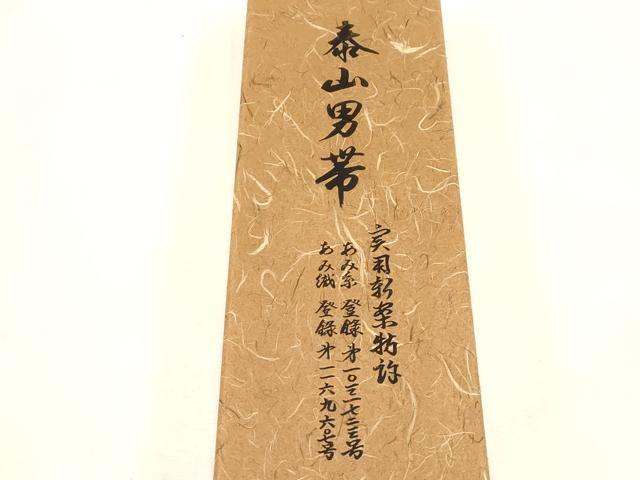 泰山男帯
実用新案特許
あみ糸 登録 第一〇三一七二三号
あみ織 登録 第一一六九六〇七号